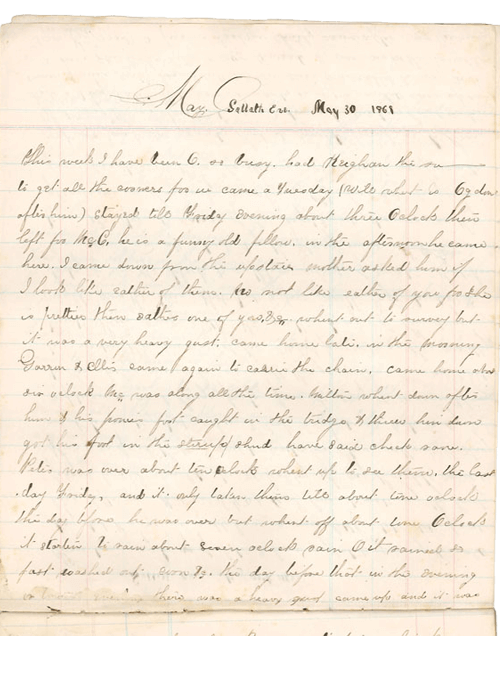 May. Sabbath Eve. May 30 1868
This week I have been O. so busy. had Neighan the su
to get all the corners for we came a Tuesday (Will what is
after him) stayed till Friday evening about three Oclock then
left for McC. he is a funny old fellow. in the afternoon he came
here. I came down from the upstairs mother asked him if
I look like eather of them. no not like eather of you for she
is prettier then eather one of you. whent out to survey but
it was a very heavy gust. came home late. in the morning
& Elis came again to carrie the chain. came home
oclock Mc was along all the time. Milton whent down after
him & his ponies foot caught in the bridge & threw him down
got his foot in the stirrup shud have said check rane.
Peti was over about ten oclock whent up to see them. the last
day Friday, and it only taken them till about nine oclock
the day before he was over but whent off about nine Oclock
it startin to rain about seven oclock rain O it rained so
fast washed out corn &c. the day before that in the evening
there was a heavy gust came up and it was